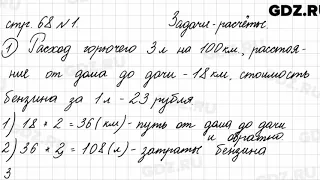 GDZ.RU
стр. 68 №1. Задачи-расчёты.
① Расход горючего 3 л на 100 км, расстоя-
ние от дома до дачи - 18 км, стоимость
бензина за 1 л - 23 рубля
1) 18 * 2 = 36 (км) - путь от дома до дачи
и обратно
2) 36 * 2 = 108 (л) - затраты бензина
3